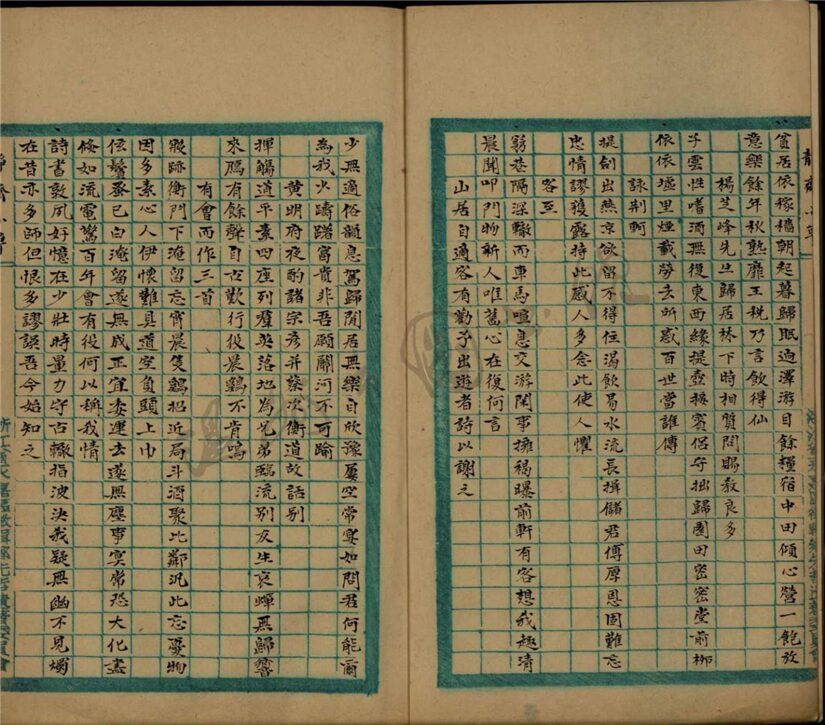 貧居依稼穡朝起暮歸眠過澤游目餘糧宿中田傾心營一飽放
意樂餘年秋熟靡王稅乃言飲得仙
楊芝峰先生歸居林下時相質問賜教良多
子雲性嗜酒無復東西緣提壺接賓侶守拙歸園田密密堂前柳
依依墟里煙載勞去所感百世當誰傳
詠荆軻
提劍出燕京欲留不得住渴飲易水流長揖儲君傅厚恩固難忘
忠情謬獲露持此感人多念此使人懼
客至
窮巷隔深轍而車馬喧息交游閑事擁褐曝前軒有客想我趣清
晨聞叩門物新人唯舊心在復何言
山居自適客有勸予出遊者詩以謝之
少無適俗韻息駕歸閑居無樂自欣豫屢空常晏如問君何能爾
為我少躊躇富貴非吾願關河不可踰
黄明府夜酌諸宗彥并談次衡道故話別
揮觴道平素四座列羣英落地為兄弟臨流別友生哀蟬無歸響
來鴈有餘聲自古歎行役晨鷄不肯鳴
有會而作三首
寢跡衡門下淹留忘宵晨隻鷄招近局斗酒聚比鄰汎此忘憂物
因多素心人伊懷難具道空負頭上巾
弦鬢蚤已白淹留遂無成正宜委運去遂無塵事冥常恐大化盡
倏如流電驚百年會有役何以稱我情
詩書敦夙好憶在少壯時量力守古轍指波決我疑無幽不見燭
在昔亦多師但恨多謬誤吾今始知之